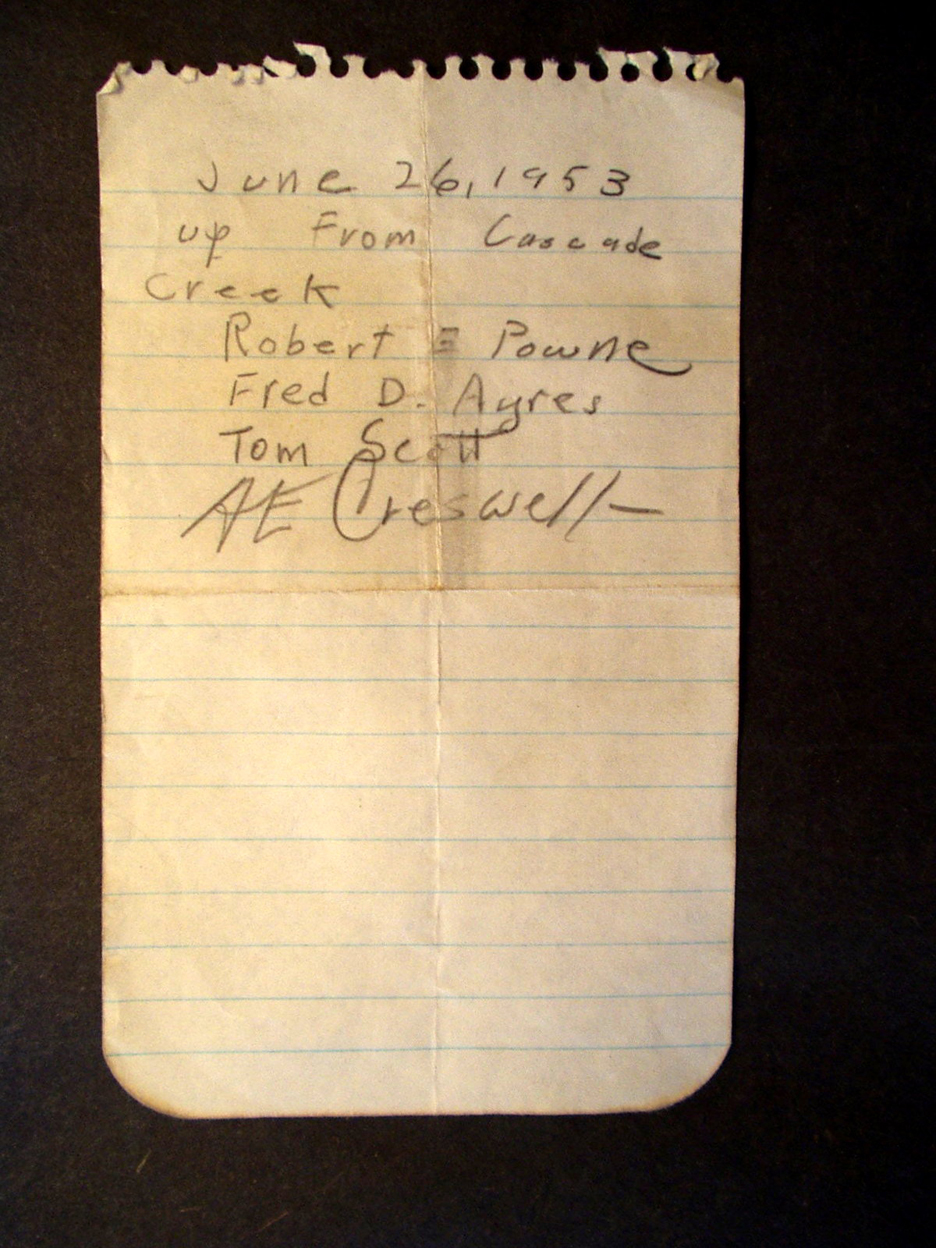 June 26, 1953
up From Cascade
Creek
Robert E Powne
Fred D. Ayres
Tom Scott
AE Creswell